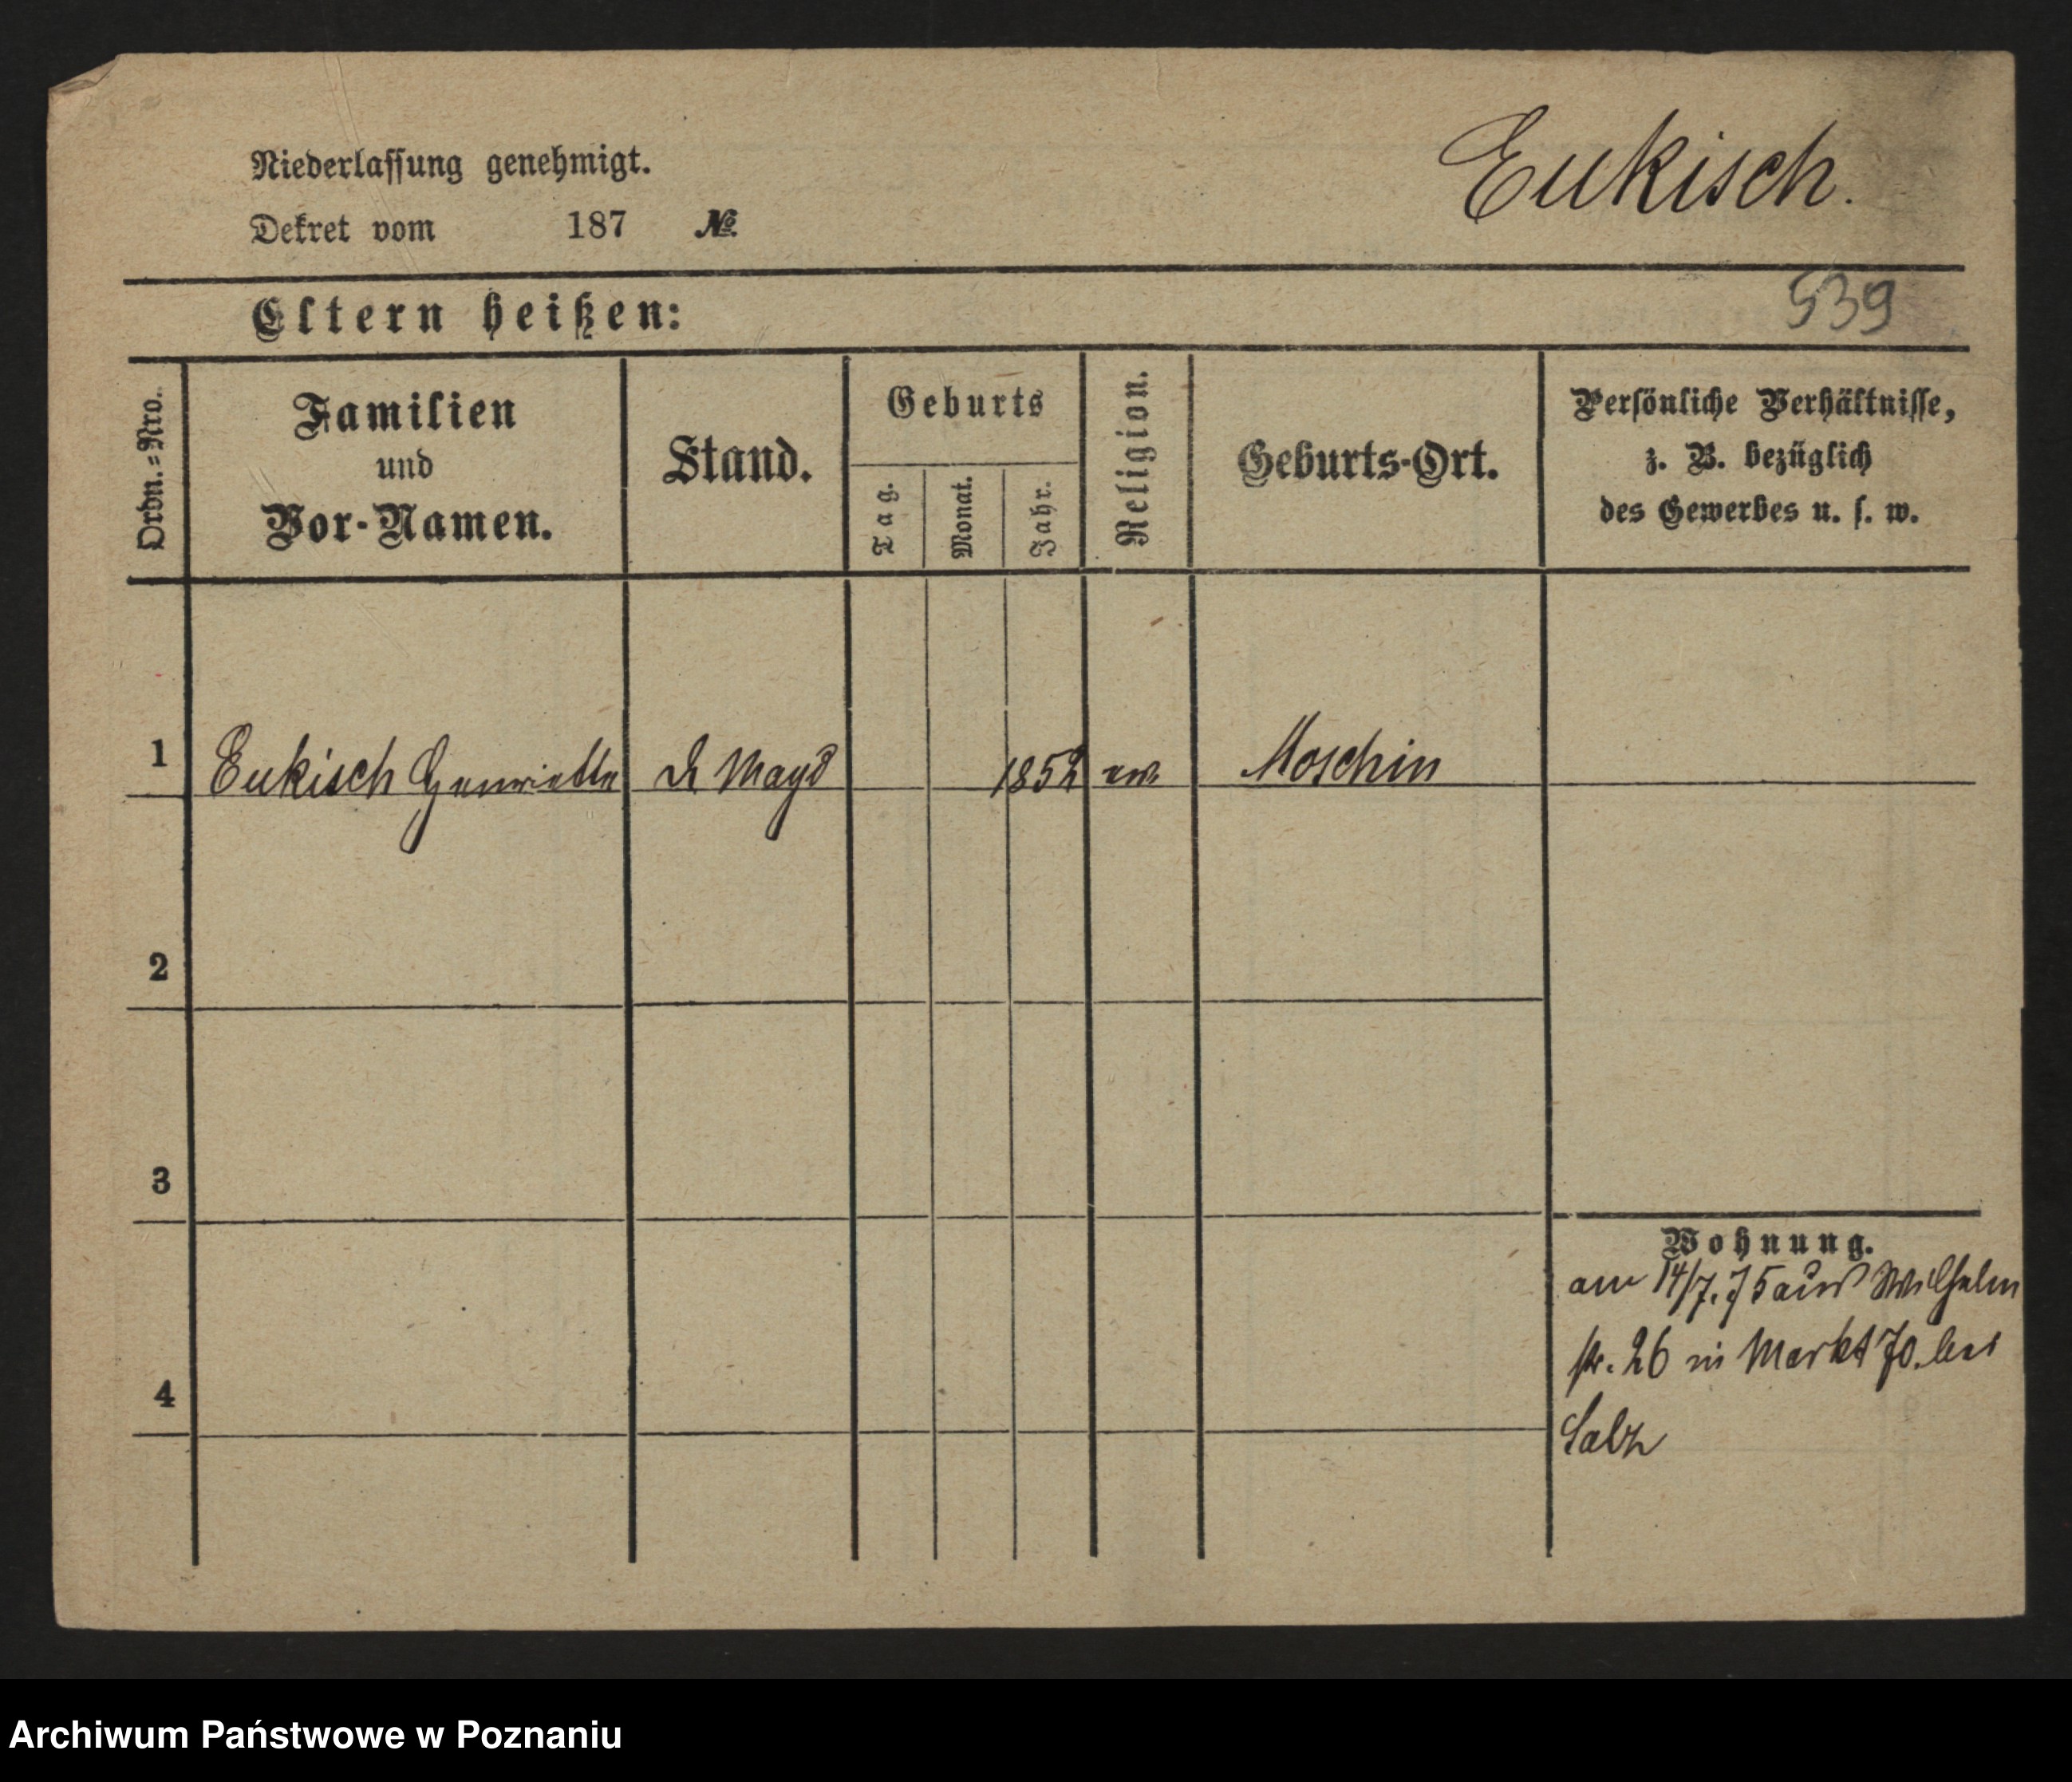 Niederlassung genehmigt.
Dekret vom 187 №
Eukisch.
539
Eltern heißen:
Ordn.=Nro.
Familien
und
Vor-Namen.
Stand.
Geburts
Tag.
Monat.
Jahr.
Religion.
Geburts-Ort.
Persönliche Verhältnisse,
z. B. bezüglich
des Gewerbes u. s. w.
1 Eukisch Henriette d Magd 1852 ev. Moschin
2
3
4
Wohnung.
am 14/7.75 aus Wilhelm
str. 26 in Markt 70. bei
Salz
Archiwum Państwowe w Poznaniu